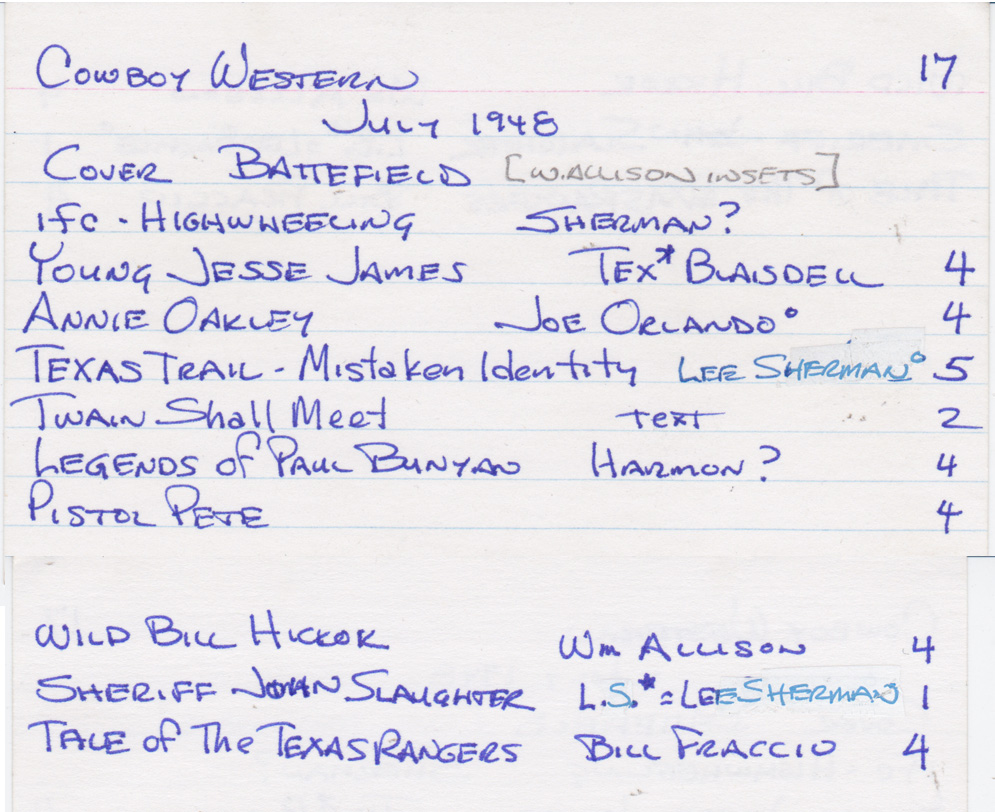 COWBOY WESTERN 17
JULY 1948
COVER BATTEFIELD [W.ALLISON INSETS]
ifc - HIGHWHEELING SHERMAN?
YOUNG JESSE JAMES TEX* BLAISDELL 4
ANNIE OAKLEY JOE ORLANDO° 4
TEXAS TRAIL - Mistaken Identity LEE SHERMAN° 5
TWAIN Shall Meet text 2
LEGENDS of PAUL BUNYAN HARMON? 4
PISTOL PETE 4
WILD BILL HICKOK Wm ALLISON 4
SHERIFF JOHN SLAUGHTER L.S.* = LEE SHERMAN 1
TALE of The TEXAS RANGERS BILL FRACCIO 4